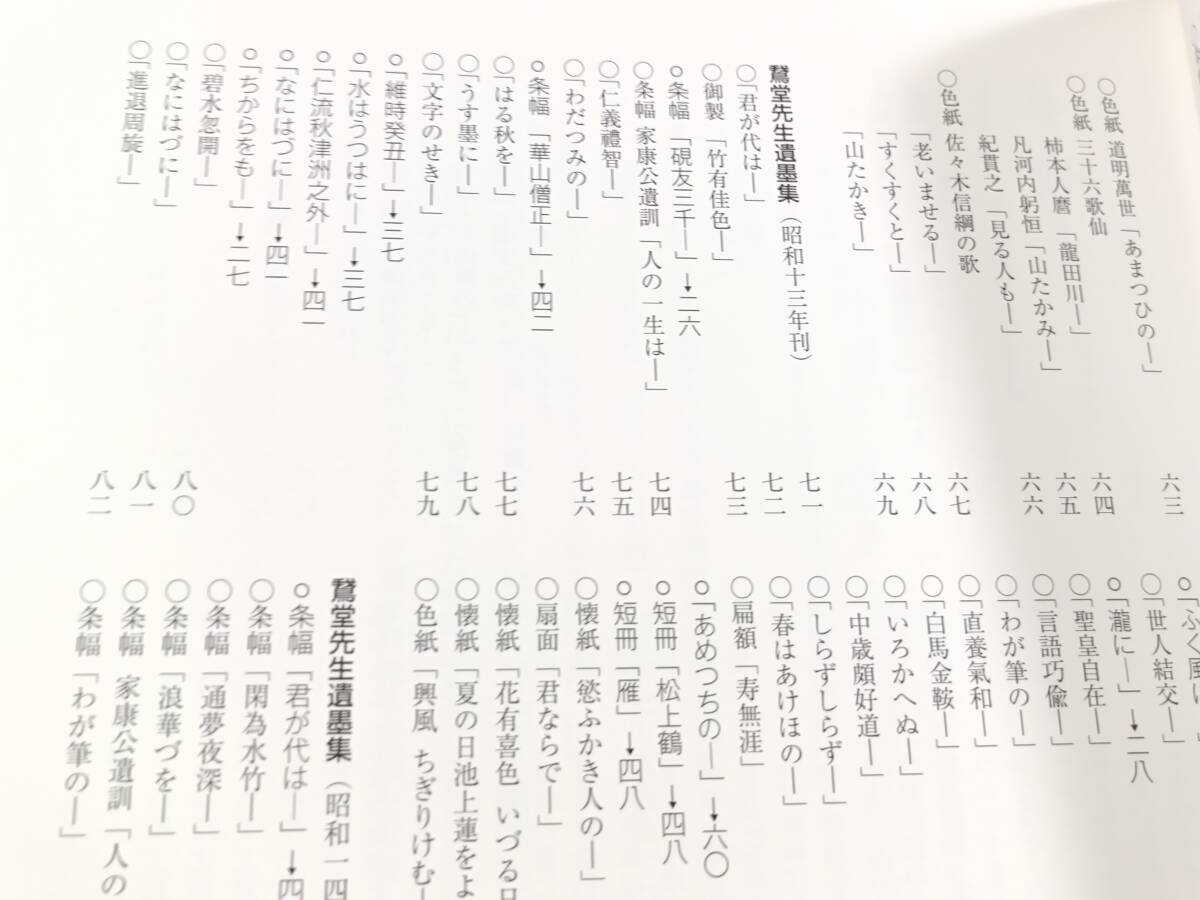 ○色紙 道明萬世「あまつひの―」 六三
○色紙 三十六歌仙
柿本人麿「龍田川―」 六四
凡河内躬恒「山たかみ―」 六五
紀貫之「見る人も―」 六六
○色紙 佐々木信綱の歌
「老いませる―」 六七
「すくすくと―」 六八
「山たかき―」 六九
鵞堂先生遺墨集(昭和十三年刊)
○「君が代は―」 七一
○御製「竹有佳色―」 七二
○条幅「硯友三千―」→二六
○条幅 家康公遺訓「人の一生は―」 七三
○「仁義禮智―」 七四
○「わだつみの―」 七五
○条幅「華山僧正―」→四二
○「はる秋を―」 七六
○「うす墨に―」 七七
○「文字のせき―」 七八
○「維時癸丑―」→三七
○「水はうつはに―」→三七
○「仁流秋津洲之外―」→四一
○「なにはづに―」→四一
○「ちからをも―」→二七
○「碧水忽開―」 七九
○「なにはづに―」 八〇
○「進退周旋―」 八一
八二
○「ふく風
○「世人結交―」
○「瀧に―」→二八
○「聖皇自在―」
○「言語巧偸―」
○「わが筆の―」
○「直養氣和―」
○「白馬金鞍―」
○「いろかへぬ―」
○「中歳頗好道―」
○「しらずしらず―」
○「春はあけほの―」
○扁額「寿無涯」
○「あめつちの―」→六〇
○短冊「松上鶴」→四八
○短冊「雁」→四八
○懐紙「慾ふかき人の―」
○扇面「君ならで―」
○懐紙「花有喜色 いづる日
○懐紙「夏の日池上蓮をよ
○色紙「興風 ちぎりけむ―
鵞堂先生遺墨集(昭和一四
○条幅「君が代は―」→四
○条幅「閑為水竹―」
○条幅「通夢夜深―」
○条幅「浪華づを―」
○条幅 家康公遺訓「人の
○条幅「わが筆の―」